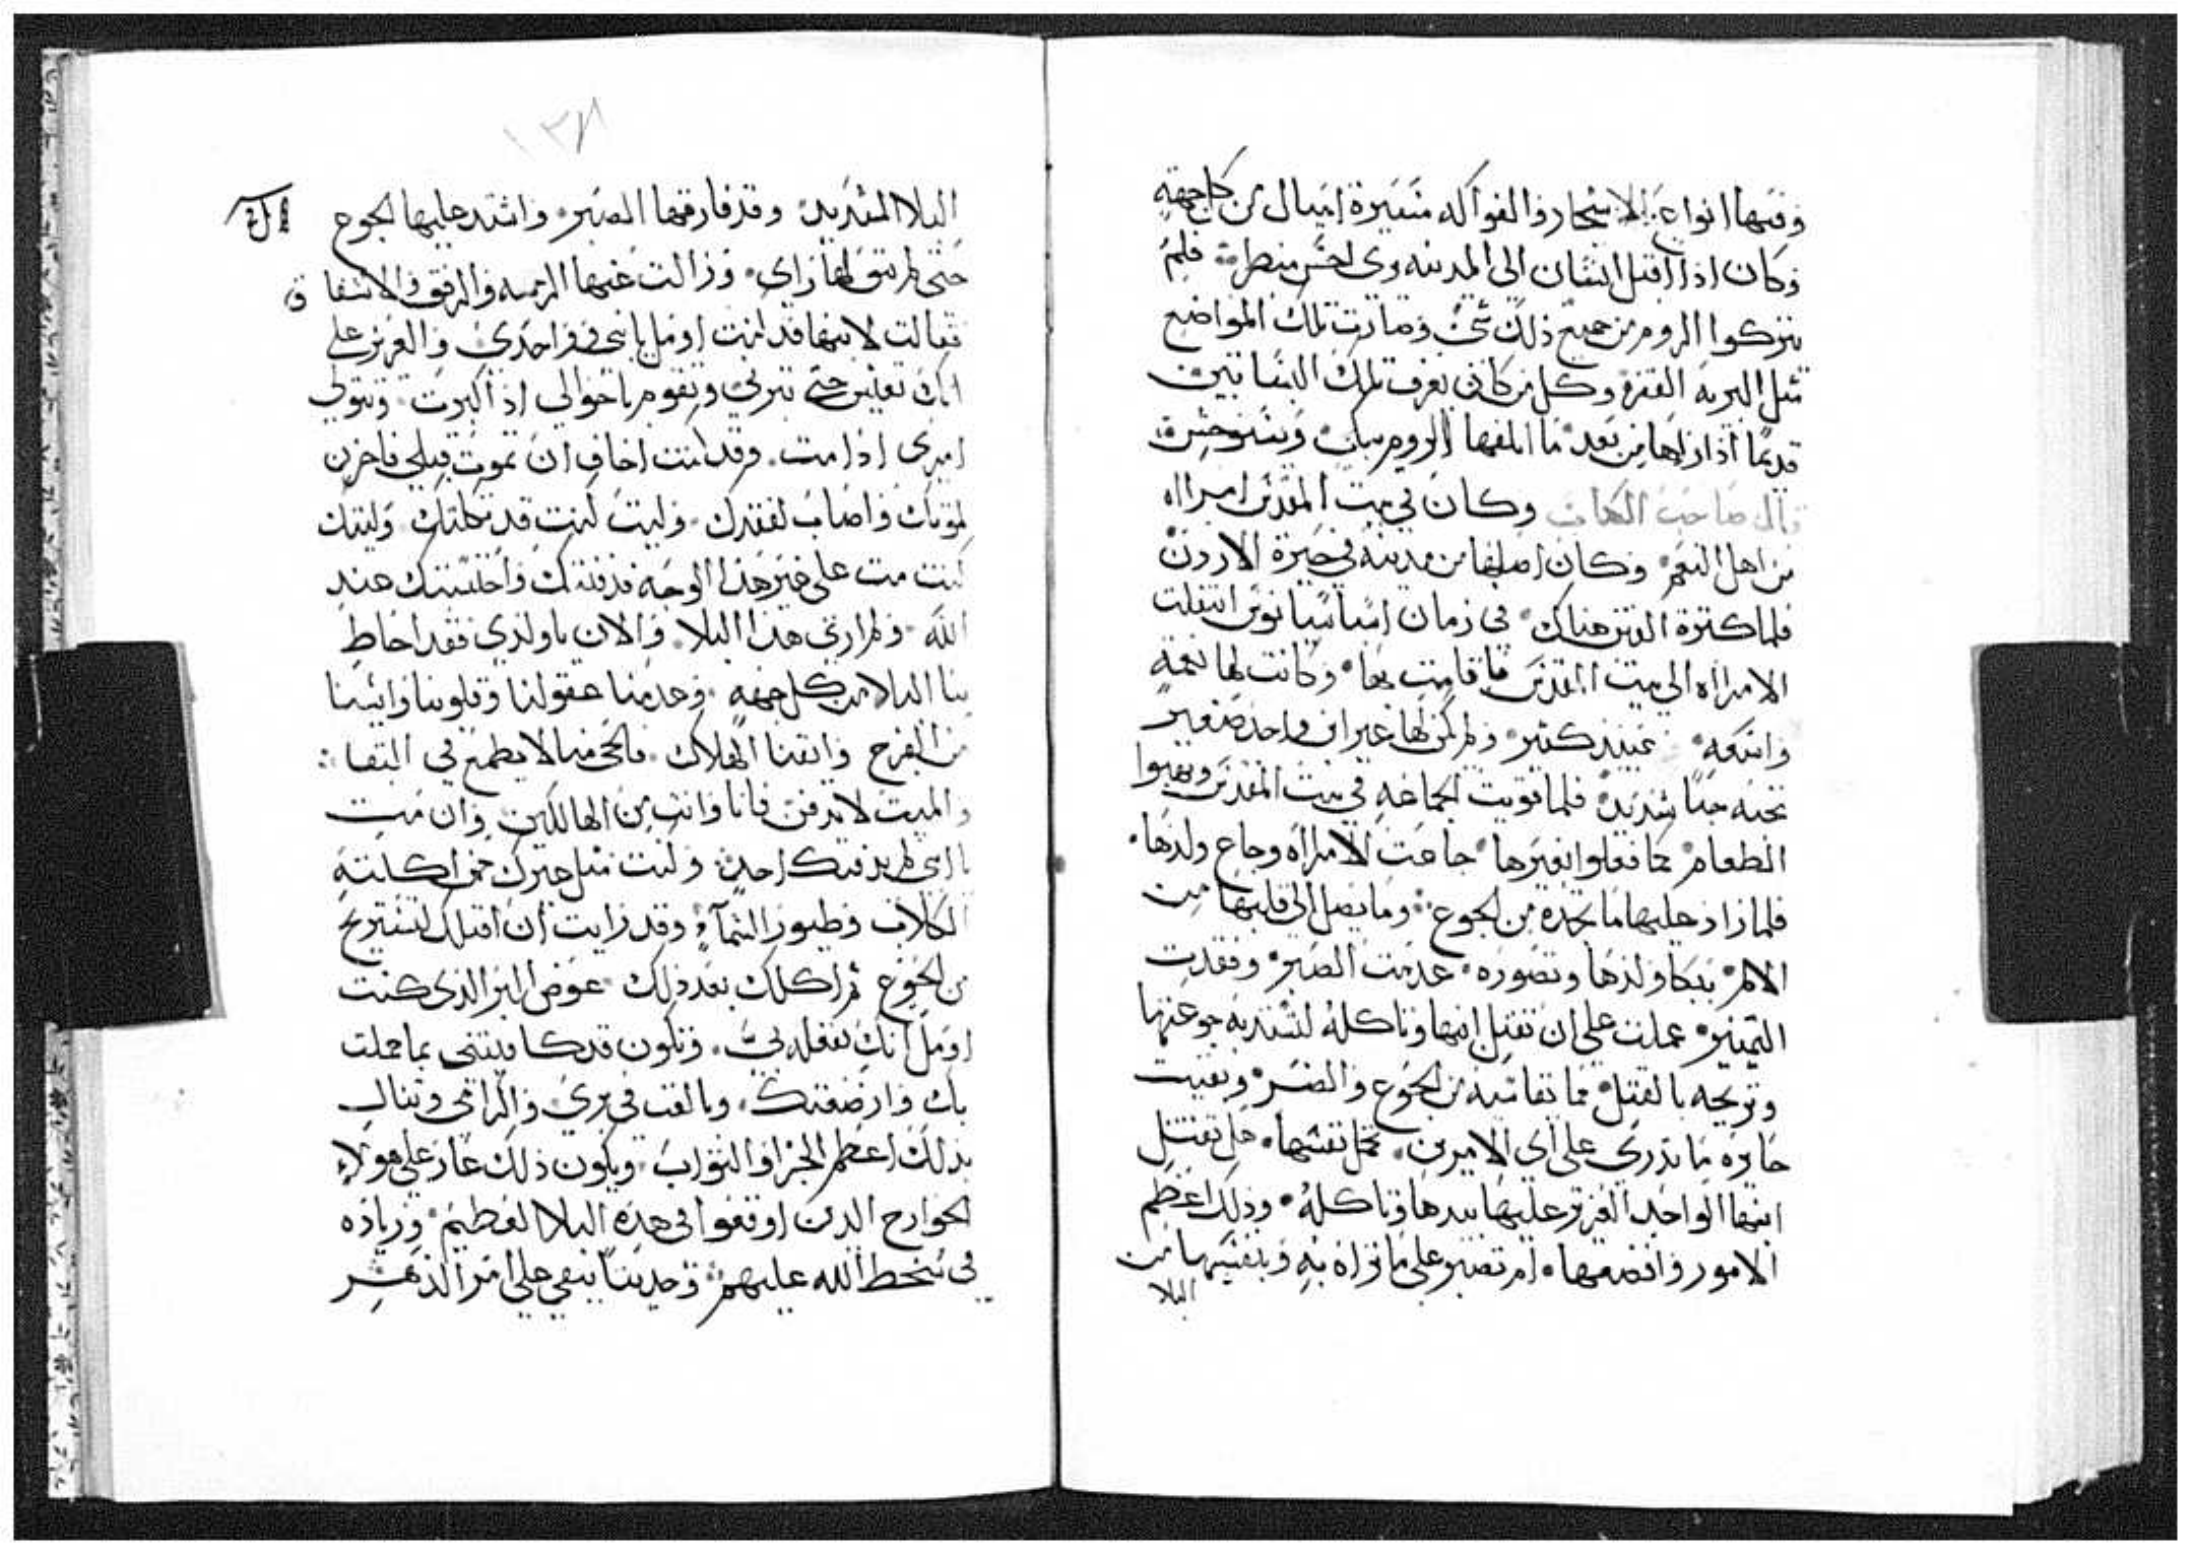 وفيها انواع الاشجار والفواكه مسيرة اميال من كل جهةٍ
وكان اذا اقبل انسان الى المدينه يرى احسن منظر فلم
يتركوا الروم من جميع ذلك شي وصارت تلك المواضع
مثل البريه القفره وكل من كان يعرف تلك البساتين
قديمًا اذا راها من بعد ما اتلفها الروم يبكي ويستوحش
قال صاحب الكتاب وكان في بيت المقدس امرااه
من اهل النعم وكان اصلها من مدينه في جيزة الاردن
فلما كثرة الفتن هناك في زمان اسباسيانوس انتقلت
الامرااه الى بيت المقدس فاقامت بها وكانت لها نعمه
واسعه عبيد كثير ولم يكن لها غير ابن واحد صغير
تحبه حبًا شديد فلما قويت المجاعه في بيت المقدس ونهبوا
الطعام كما فعلوا بغيرها جاعت الامرااه وجاع ولدها
فلما زاد عليها ما تجده من الجوع وما يصل الى قلبها من
الالم ببكا ولدها وتضوره عدمت الصبر وفقدت
التمييز عملت على ان تقتل ابنها وتاكله لتسد به جوعتها
وتريحه بالقتل مما تقاسيه من الجوع والضر وبقيت
حايره ما تدري على اي الامرين تحمل نفسها هل تقتل
ابنها الواحد العزيز عليها بيدها وتاكله وذلك اعظم
الامور واصعبها ام تصبر على ما تراه به وبنفسها من
البلا
١٣٨
البلا الشديد وقد فارقها الصبر واشتد عليها الجوع
حتى لم يبق لها راى وزالت عنها الرحمه والرفق والاشفاق
فقالت لابنها قد كنت اومل يا ابني وواحدي والعزيز على
انك تعيش حتى تبرني وتقوم باحوالى اذا كبرت وتتولى
امرى اذا مت وقد كنت اخاف ان تموت قبلي فاحزن
لموتك واصاب لفقدك وليت كنت قد ثكلتك وليتك
كنت مت على غير هذا الوجه فدفنتك واحتسبتك عند
الله ولم ارى هذا البلا والان يا ولدي فقد احاط
بنا البلا من كل جهةٍ وعدمنا عقولنا وقلوبنا وايسنا
من الفرح وايقنا الهلاك فالحى منا لا يطمع في البقا
والميت لا يدفن فانا وانت من الهالكين وان مت
يا ابني لم يدفنك احد وكنت مثل غيرك ممن اكلته
الكلاب وطيور السمآء وقد رايت ان اقتلك لتستريح
من الجوع ثم اكلك بعد ذلك عوض البر الذى كنت
اومل انك تفعله بي وتكون قد كافيتني بما حملت
بك وارضعتك وبالغت في بري والزامي وتنال
بذلك اعظم الجزا والثواب ويكون ذلك عار على هولاء
الخوارج الذين اوقعوا في هذه البلا العظيم وزياده
فى سخط الله عليهم وحديثًا يبقى على امر الدهر